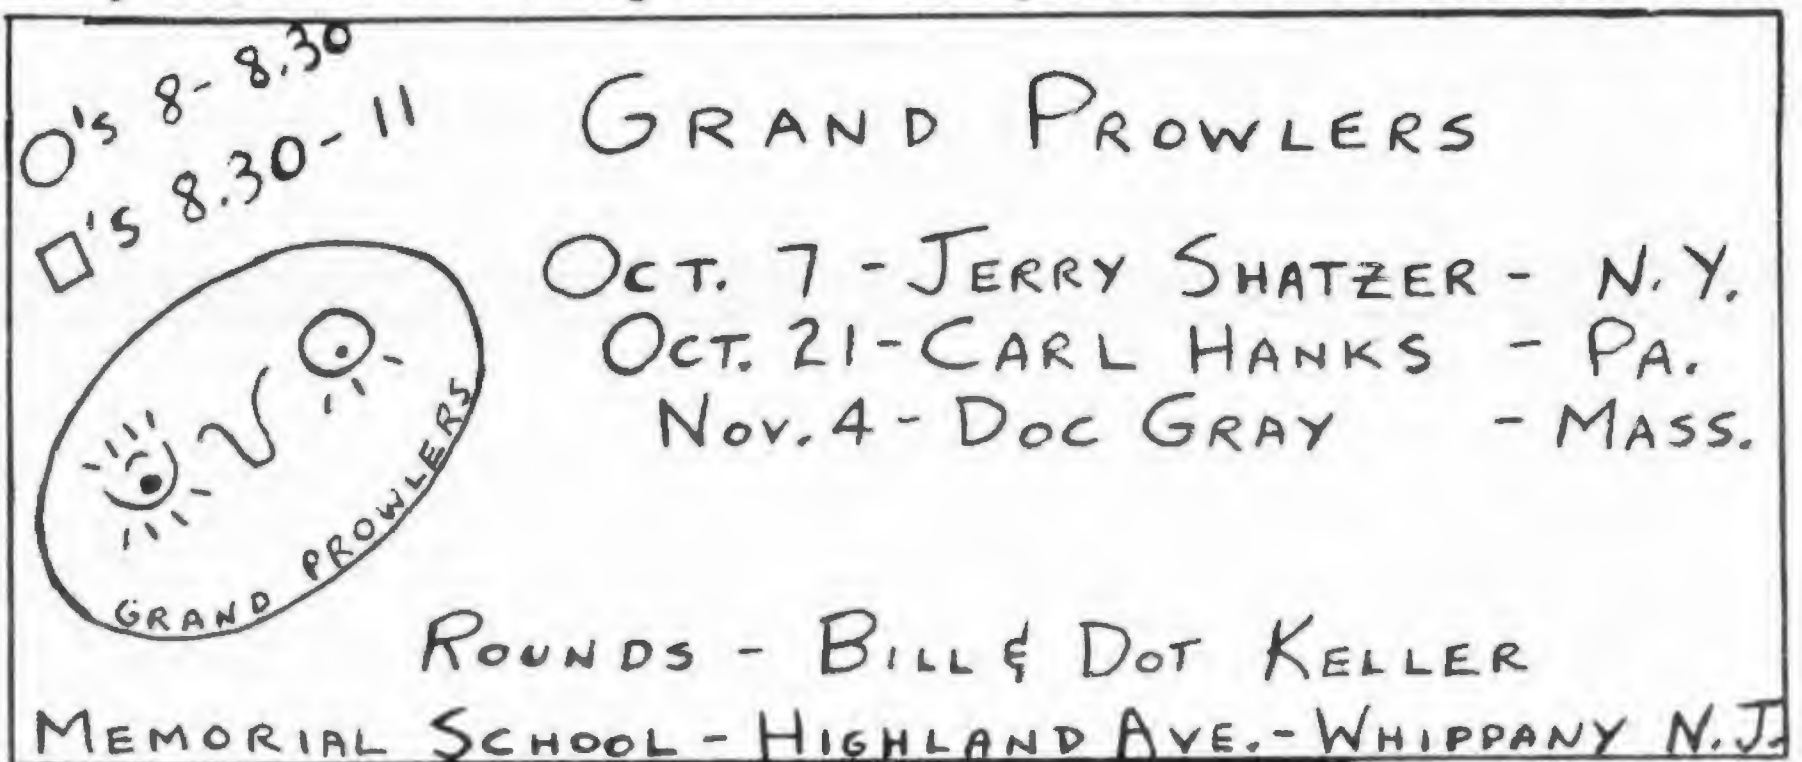 O's 8-8.30
□'s 8.30-11
GRAND PROWLERS
OCT. 7 - JERRY SHATZER - N.Y.
OCT. 21 - CARL HANKS - PA.
NOV. 4 - DOC GRAY - MASS.
GRAND PROWLERS
ROUNDS - BILL & DOT KELLER
MEMORIAL SCHOOL - HIGHLAND AVE. - WHIPPANY N.J.